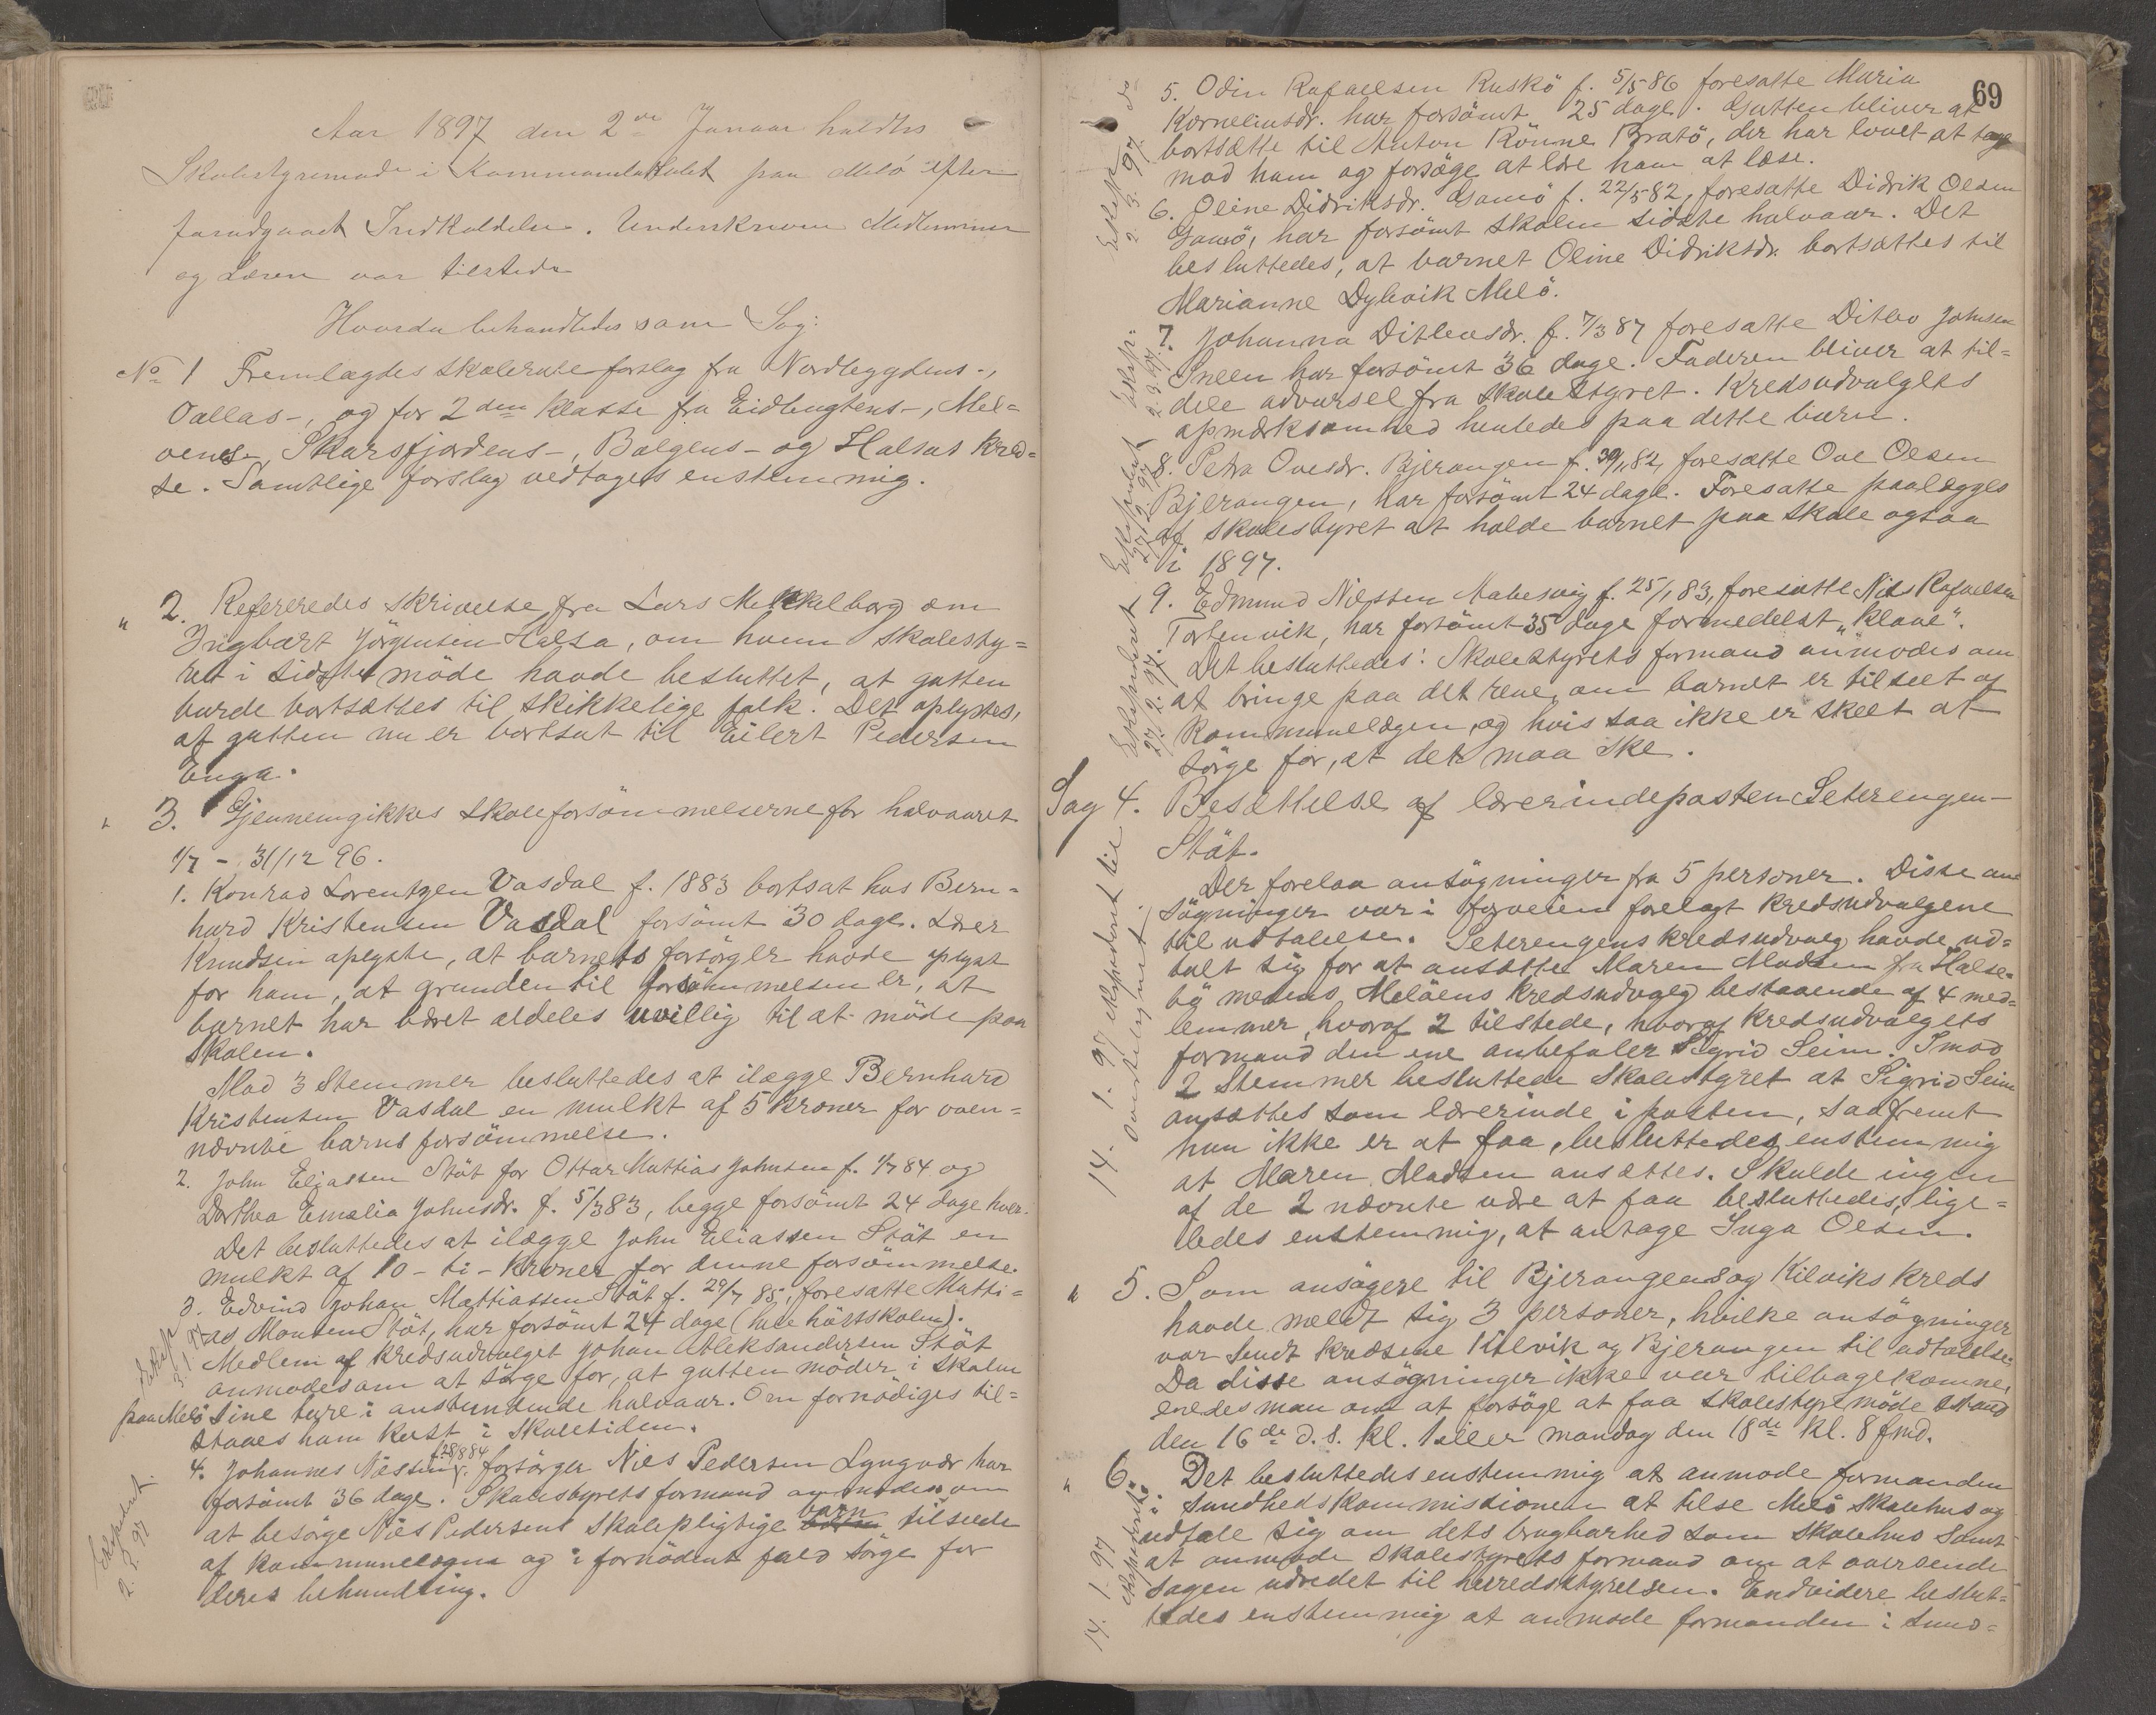 Aar 1897 den 2den Januar holdtes
Skolestyremøde i Kommunelokalet paa Melö efter
forudgaaet Indkaldelse. Underskrevne Medlemmer
og Lærer var tilstede
Hvorda behandledes som Sag:
No 1 Fremlagdes skoleruteforslag fra Nordbygdens-,
Vallas-, og for 2den klasse fra Eidbugtens-, Mel=
venes-, Skarsfjordens-, Bolgens- og Halsas kred=
se. Samtlige forslag vedtoges enstemmig.
" 2. Refereredes skrivelse fra Lars Mekkelborg om
Ingbart Jörgensen Halsa, om hvem skolesty=
ret i sidste möde havde besluttet, at gutten
burde bortsættes til skikkelige folk. Det oplystes,
at gutten nu er bortsat til Eilert Pedersen
Enga.
" 3. Gjennemgikkes skoleforsömmelserne for halvaaret
1/7 - 31/12 96.
1. Konrad Lorentzen Vasdal f. 1883 bortsat hos Bern=
hard Kristensen Vasdal forsömt 30 dage. Lærer
Knudsen oplyste, at barnets forsörger havde oplyst
for ham, at grunden til forsömmelsen er, at
barnet har været aldeles uvillig til at möde paa
skolen.
Mod 3 Stemmer besluttedes at ilægge Bernhard
Kristensen Vasdal en mulkt af 5 kroner for oven=
nævnte barns forsömmelse.
2. John Eliassen Stöt for Ottar Mattias Johnsen f. 1/7 84 og
Dorthea Emalia Johnsdr. f. 5/3 83, begge forsömt 24 dage hver.
Det besluttedes at ilægge John Eliassen Stöt en
mulkt af 10 - ti - kroner for denne forsömmelse.
3. Edvind Johan Mattiassen Stöt f. 29/7 85, foresatte Matti=
as Monsen Stöt, har forsömt 24 dage (hele höstskolen).
Medlem af kredsudvalget Johan Aleksandersen Stöt
anmodes om at sörge for, at gutten möder i skolen
paa Melö sine ture i anstundende halvaar. Om fornödiges til=
staaes ham kost i skoletiden.
Eksp.
3. 1. 97
4. Johannes Nilssen f. 28/8 84 forsörger Nils Pedersen Lyngvær har
forsömt 36 dage. Skolestyrets formand anmodes om
at besörge Nils Pedersens skolepligtige barn tilseede
af kommunelægen og i fornödent fald sörge for
deres behandling.
Ekspedert.
2. 2. 97
69
5. Odin Rafaelsen Ruskö f. 5/5 86 foresatte Maria
Korneliusdr. har forsömt 25 dage. Gutten bliver at
bortsætte til Anton Rönne Bratö, der har lovet at tage
mod ham og forsöge at lære ham at læse.
Eksp. 2. 3. 97. do
6. Oline Didriksdr. Gamö f. 22/5 82, foresatte Didrik Olsen
Gamö, har forsömt skolen sidste halvaar. Det
besluttedes, at barnet Oline Didriksdr. bortsættes til
Marianne Dybvik Melö.
7. Johanna Ditlevsdr. f. 7/3 87 foresatte Ditlev Johnsen
Sneen har forsömt 36 dage. Faderen bliver at til=
dele advarsel fra skolestyret. Kredsudvalgets
opmærksomhed henledes paa dette barn.
Eksp: 2. 3. 97.
8. Petra Ovesdr. Bjerangen f. 30/1 82, foresatte Ove Olsen
Bjerangen, har forsömt 24 dage. Foresatte paalægges
af skolestyret at holde barnet paa skole ogsaa
i 1897.
Ekspedert 27. 2. 97
9. Edmund Nilssen Mabesvig f. 25/1 83, foresatte Nils Rafaelsen
Torstenvik, har forsömt 35 dage formedelst "Klaae".
Det besluttedes: Skolestyrets formand anmodes om
at bringe paa det rene, om barnet er tilseet af
kommunelægen, og hvis saa ikke er skeet at
sörge for, at det maa ske.
Ekspedert 27. 2. 97.
Sag 4. Besættelse af lærerindeposten Seterengen-
Stöt.
Der forelaa ansögninger fra 5 personer. Disse an=
sögninger var i forveien forelagt kredsudvalgene
til udtalelse. Seterengens kredsudvalg havde ud=
talt sig for at ansætte Maren Madsen fra Halse=
bö medens Melöens kredsudvalg bestaaende af 4 med=
lemmer, hvoraf 2 tilstede, hvoraf kredsudvalgets
formand den ene anbefaler Sigrid Seim. Imod
2 Stemmer besluttede Skolestyret at Sigrid Seim
ansættes som lærerinde i posten, saafremt
hun ikke er at faa, besluttedes enstemmig
at Maren Madsen ansættes. Skulde ingen
af de 2 nævnte være at faa besluttedes, lige=
ledes enstemmig, at antage Inga Olsen.
14. 1. 97 ekspedert til
" 5. Som ansögere til Bjerangens og Kilviks kreds
havde meldt sig 3 personer, hvilke ansögninger
var sendt kredsene Kilvik og Bjerangen til udtalelse.
Da disse ansögninger ikke var tilbagekomne,
enedes man om at forsöge at faa skolestyremöde istand
den 16de d. s. kl. 1 eller mandag den 18de kl. 8 fmd.
" 6. Det besluttedes enstemmig at anmode formanden
i Sundhedskommissionen at tilse Melö skolehus og
udtale sig om dets brugbarhed som skolehus samt
at anmode skolestyrets formand om at oversende
sagen udredet til herredsstyrelsen. Endvidere beslut=
tedes enstemmig at anmode formanden i Sund=
14. 1. 97 ekspedert